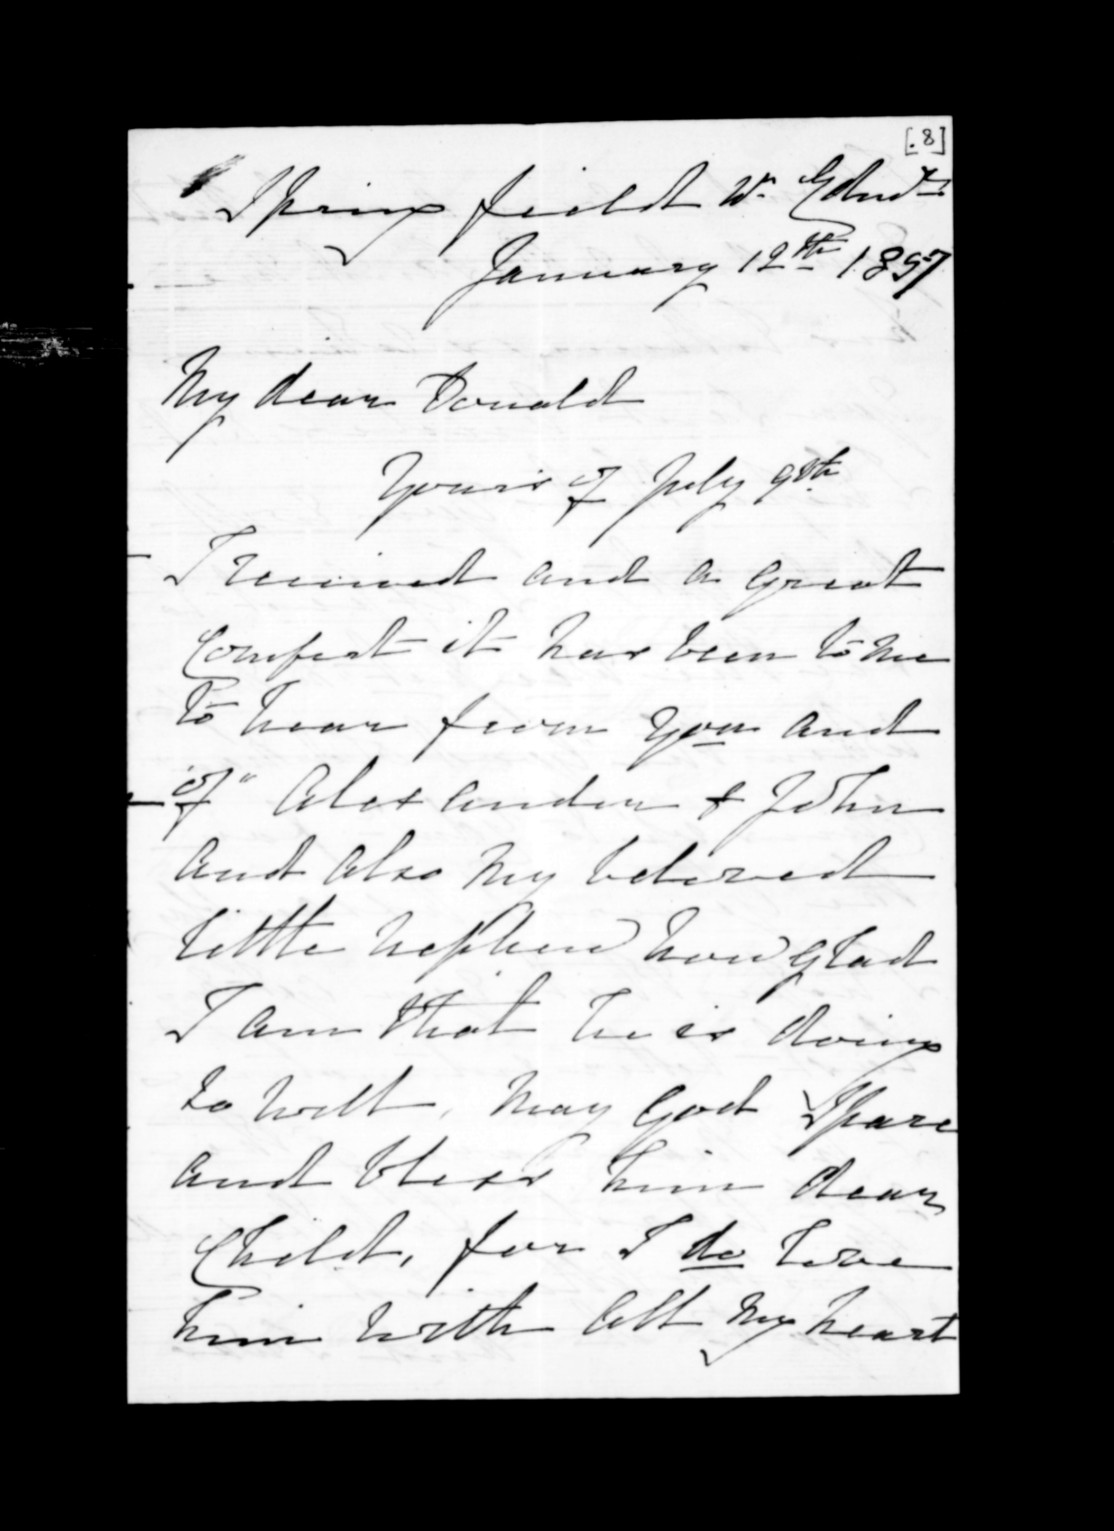 [.8]
Spring field Nr Edinr
January 12th 1857
My dear Donald
Yours of July 9th
I received and a great
Comfort it has been to me
to hear from you and
"of" Alexander & John
and also my beloved
little nephew how glad
I am that he is doing
so well, may God spare
and bless him dear
Child, for I do love
him with all my heart